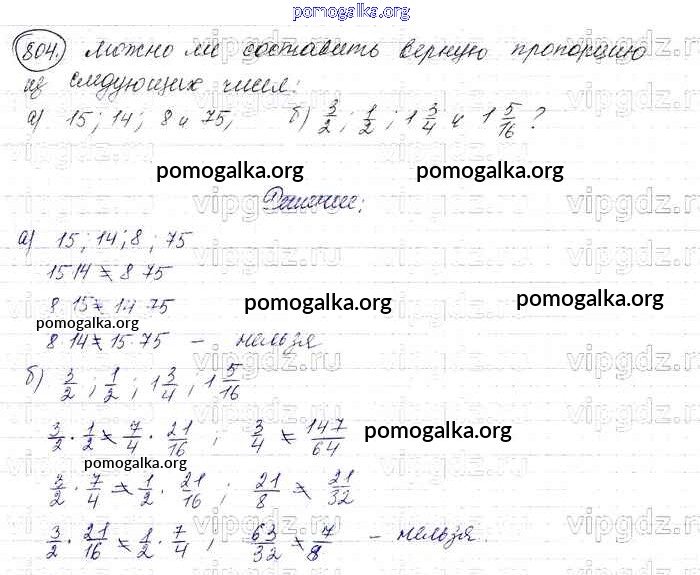 pomogalka.org
804. Можно ли составить верную пропорцию
из следующих чисел:
а) 15; 14; 8 и 75, б) 3/2; 1/2; 1 3/4 и 1 5/16?
pomogalka.org pomogalka.org
vipgdz.ru
Решение:
а) 15; 14; 8; 75
15 14 ≠ 8 75
8 15 ≠ 14 75
pomogalka.org pomogalka.org
pomogalka.org
8 14 ≠ 15 75 – нельзя
vipgdz.ru
б) 3/2; 1/2; 1 3/4; 1 5/16
3/2 · 1/2 ≠ 7/4 · 21/16; 3/4 ≠ 147/64
pomogalka.org
pomogalka.org
3/2 · 7/4 ≠ 1/2 · 21/16; 21/8 ≠ 21/32
vipgdz.ru
3/2 · 21/16 ≠ 1/2 · 7/4; 63/32 ≠ 7/8 – нельзя.